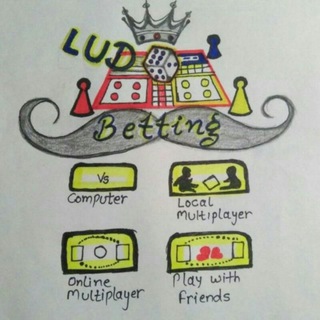 LUDO
Betting
Vs
Computer
Local
Multiplayer
Online
Multiplayer
Play with
friends